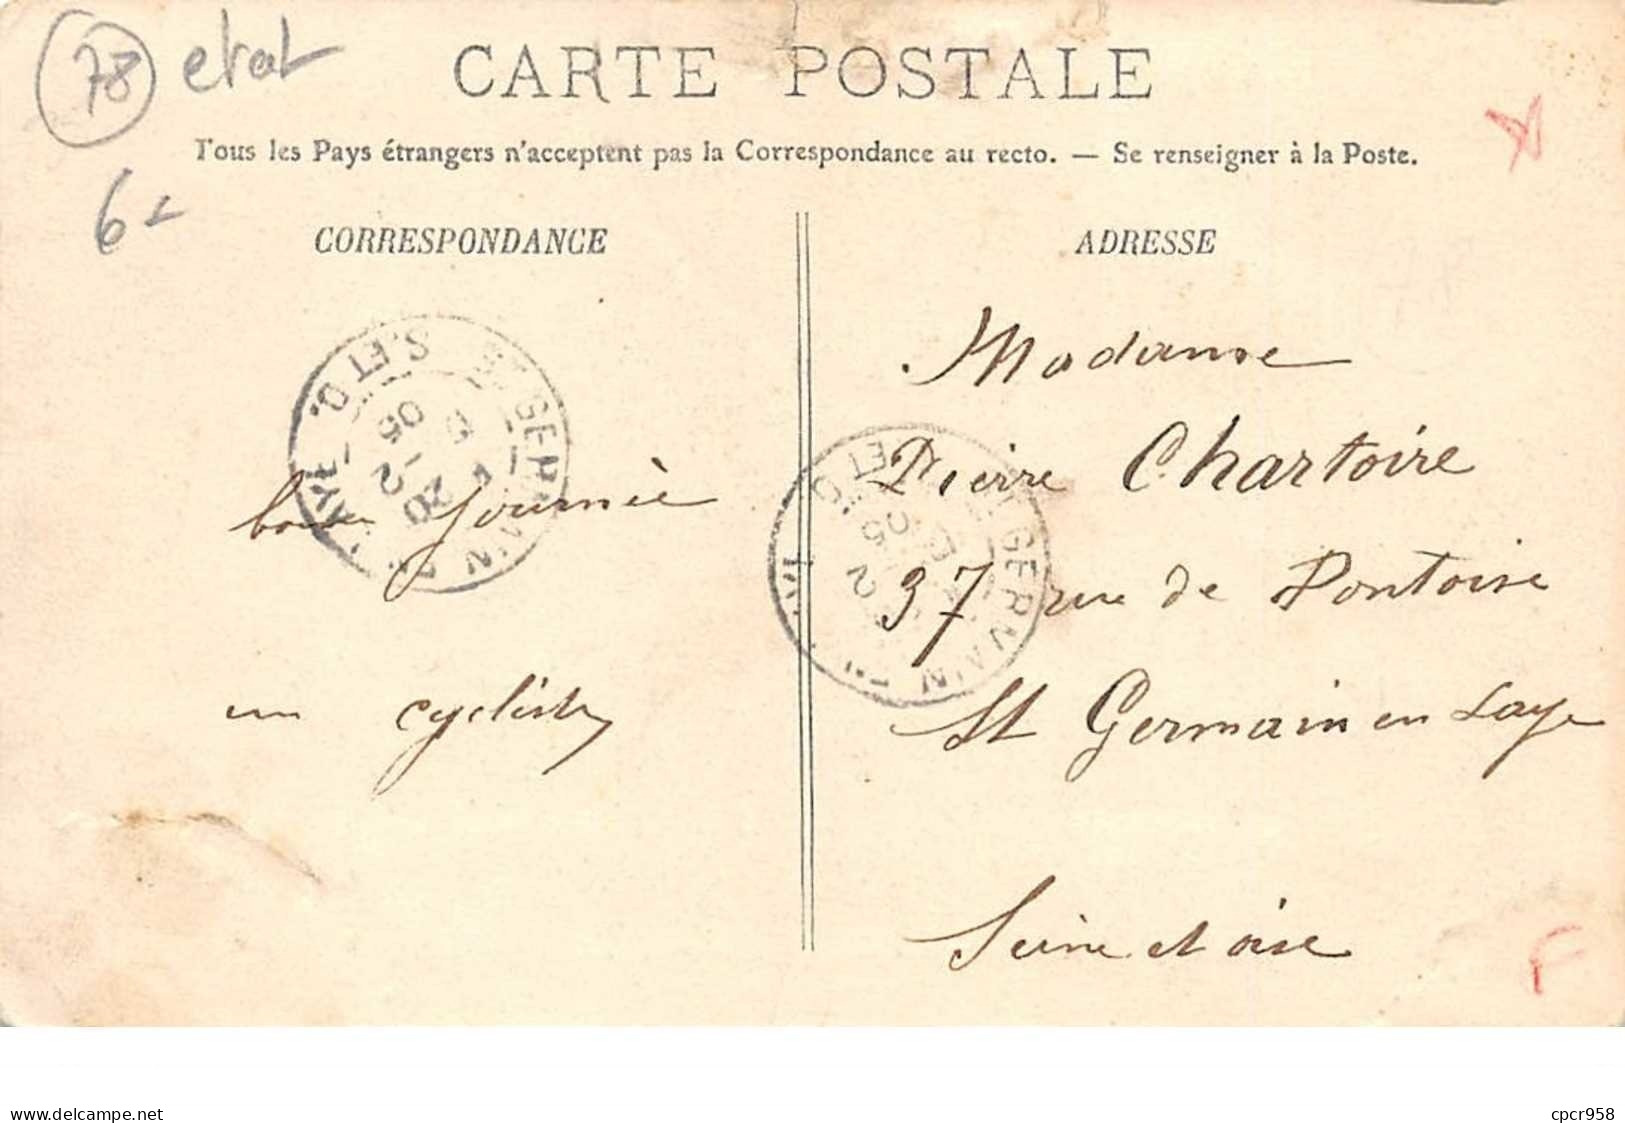 78 etat
CARTE POSTALE
Tous les Pays étrangers n'acceptent pas la Correspondance au recto. — Se renseigner à la Poste.
6-
CORRESPONDANCE
ADRESSE
ST GERMAIN EN LAYE S. ET O.
20 -2 05
bonne journèe
un cycliste
Madame
Pierre Chartoire
37 rue de Pontoise
St Germain en Laye
Seine et oise
F
www.delcampe.net
cpcr958